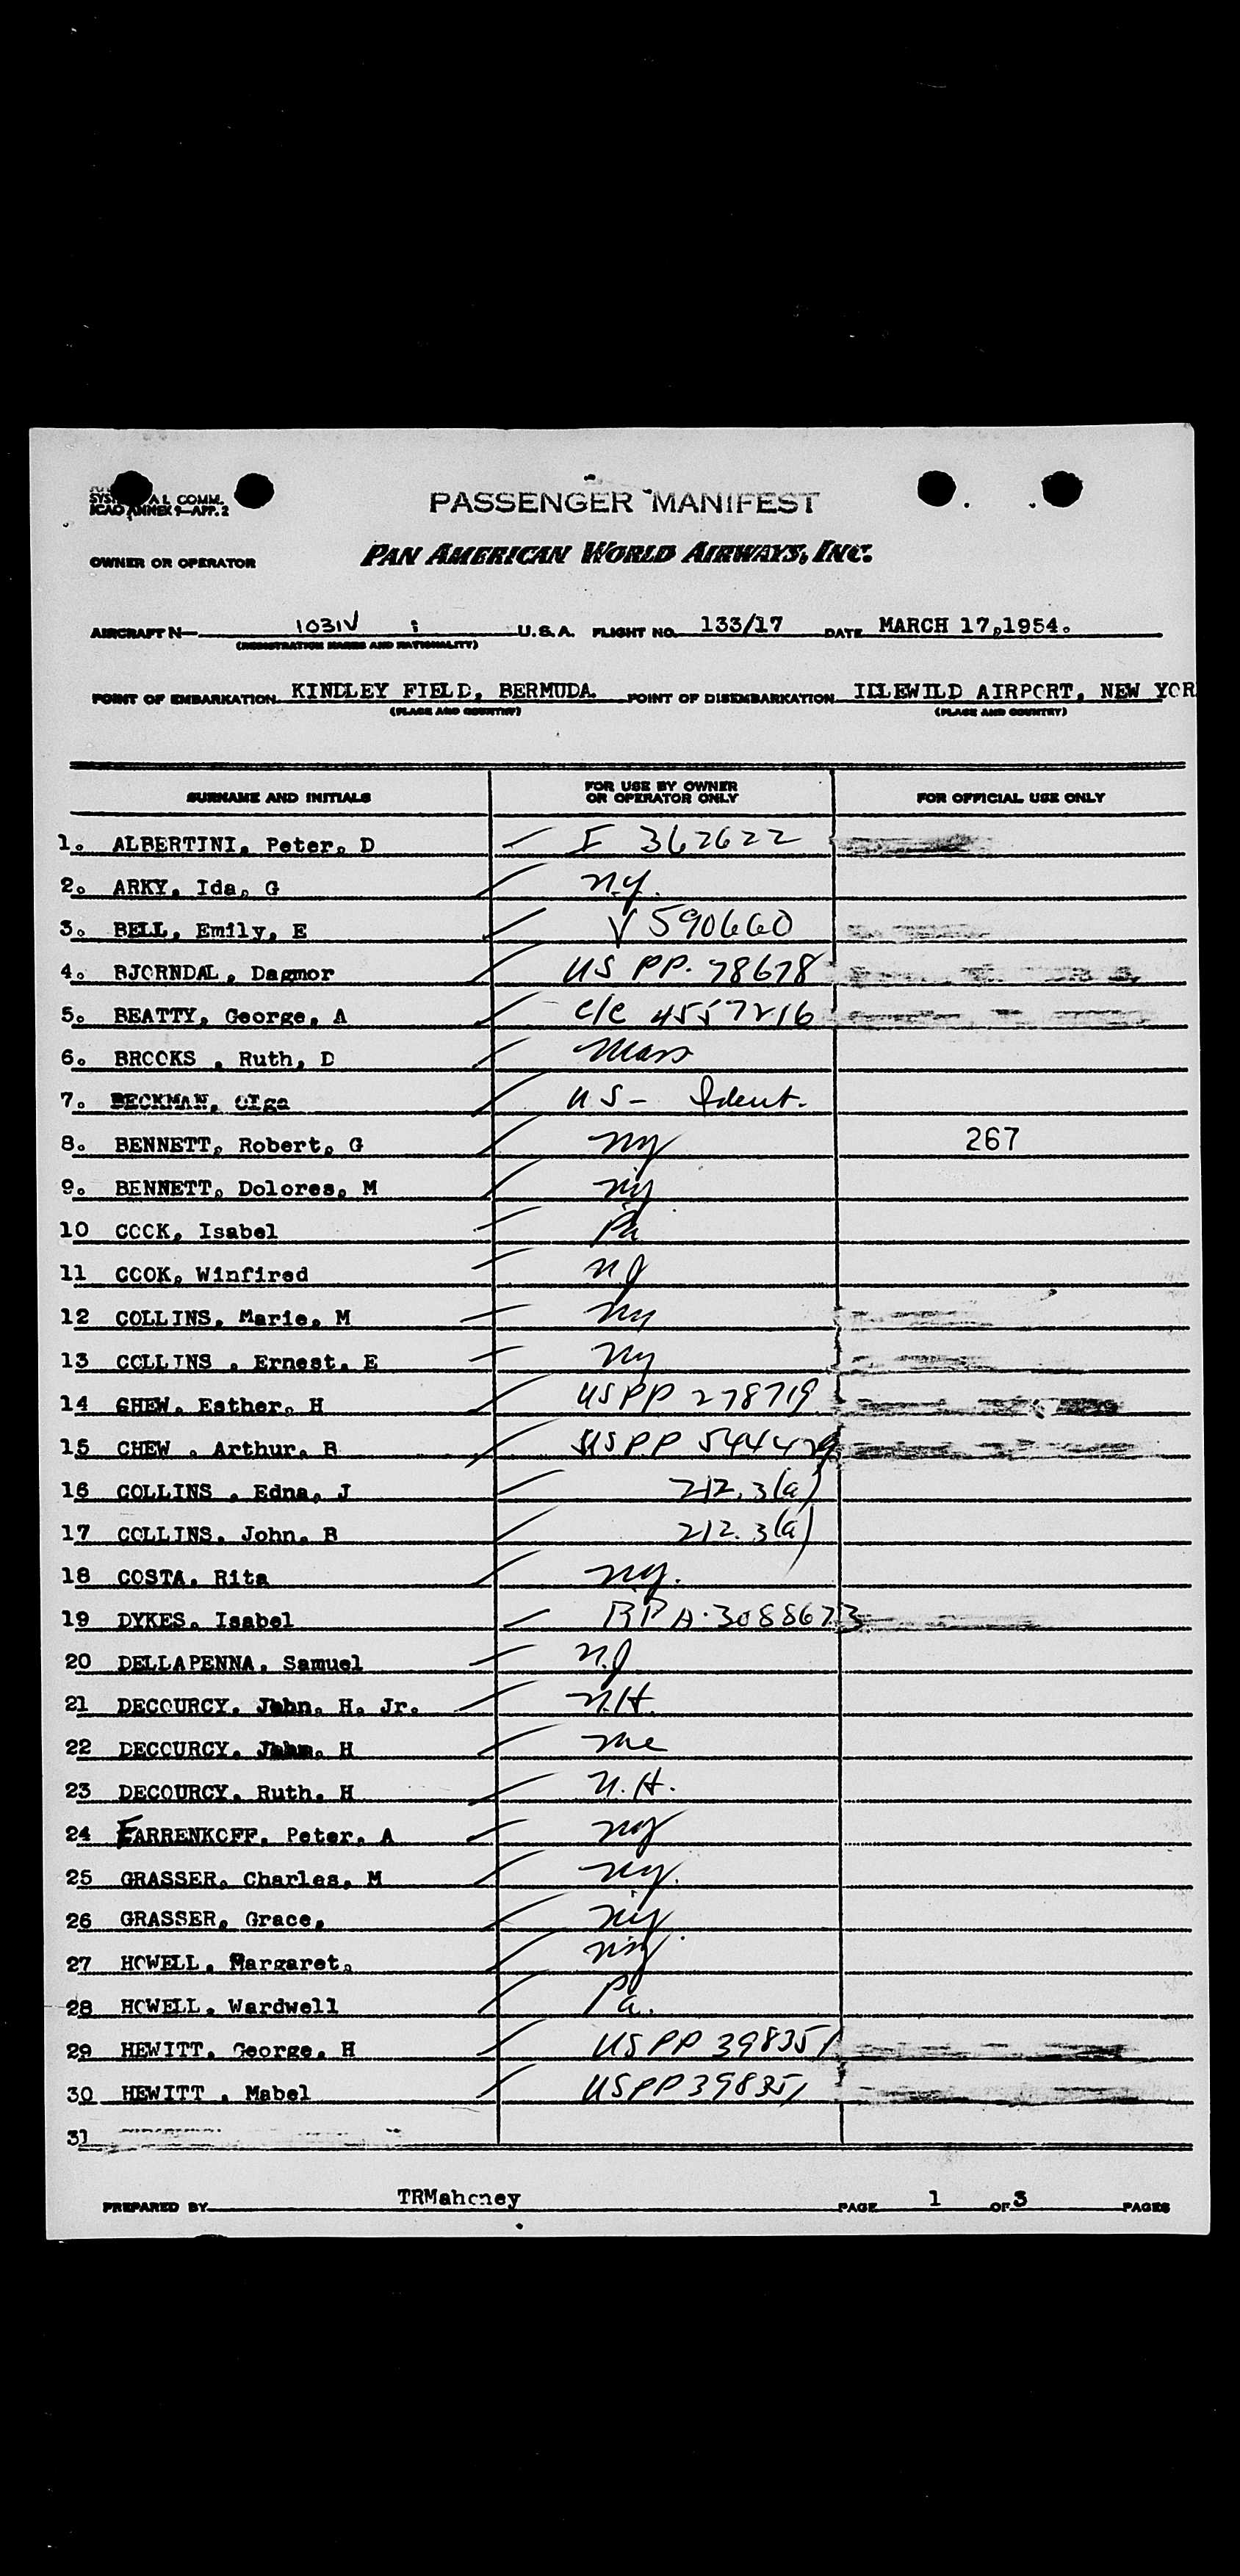 SYS AL COMM.
ICAO ANNEX 9—APP. 2
PASSENGER MANIFEST
OWNER OR OPERATOR PAN AMERICAN WORLD AIRWAYS, INC.
AIRCRAFT N— 1031V U.S.A. FLIGHT NO. 133/17 DATE MARCH 17,1954.
(REGISTRATION MARKS AND NATIONALITY)
POINT OF EMBARKATION KINDLEY FIELD, BERMUDA. POINT OF DISEMBARKATION IDLEWILD AIRPORT, NEW YOR
(PLACE AND COUNTRY) (PLACE AND COUNTRY)
SURNAME AND INITIALS FOR USE BY OWNER OR OPERATOR ONLY FOR OFFICIAL USE ONLY
1. ALBERTINI, Peter, D I 362622
2. ARKY, Ida, G n.y.
3. BELL, Emily, E V 590660
4. BJORNDAL, Dagmor US PP. 78678
5. BEATTY, George, A C/C 4557216
6. BROOKS , Ruth, D Mass
7. BECKMAN, Olga US- Ident.
8. BENNETT, Robert, G ny 267
9. BENNETT, Dolores, M ny
10 COOK, Isabel Pa
11 COOK, Winfired nJ
12 COLLINS, Marie, M ny
13 COLLINS , Ernest, E ny
14 CHEW, Esther, H USPP 278719
15 CHEW , Arthur, B USPP 544429
16 COLLINS , Edna, J 212.3(a)
17 COLLINS, John, B 212.3(a)
18 COSTA, Rita ny.
19 DYKES, Isabel RP A-3088673
20 DELLAPENNA, Samuel n.J
21 DECOURCY, John, H, Jr. n.H.
22 DECOURCY, John, H me
23 DECOURCY, Ruth, H n.H.
24 FARRENKOFF, Peter, A ny
25 GRASSER, Charles, M ny.
26 GRASSER, Grace, ny
27 HOWELL, Margaret, ny
28 HOWELL, Wardwell Pa.
29 HEWITT, George, H USPP 398351
30 HEWITT , Mabel USPP 398351
31
PREPARED BY TRMahoney PAGE 1 OF 3 PAGES